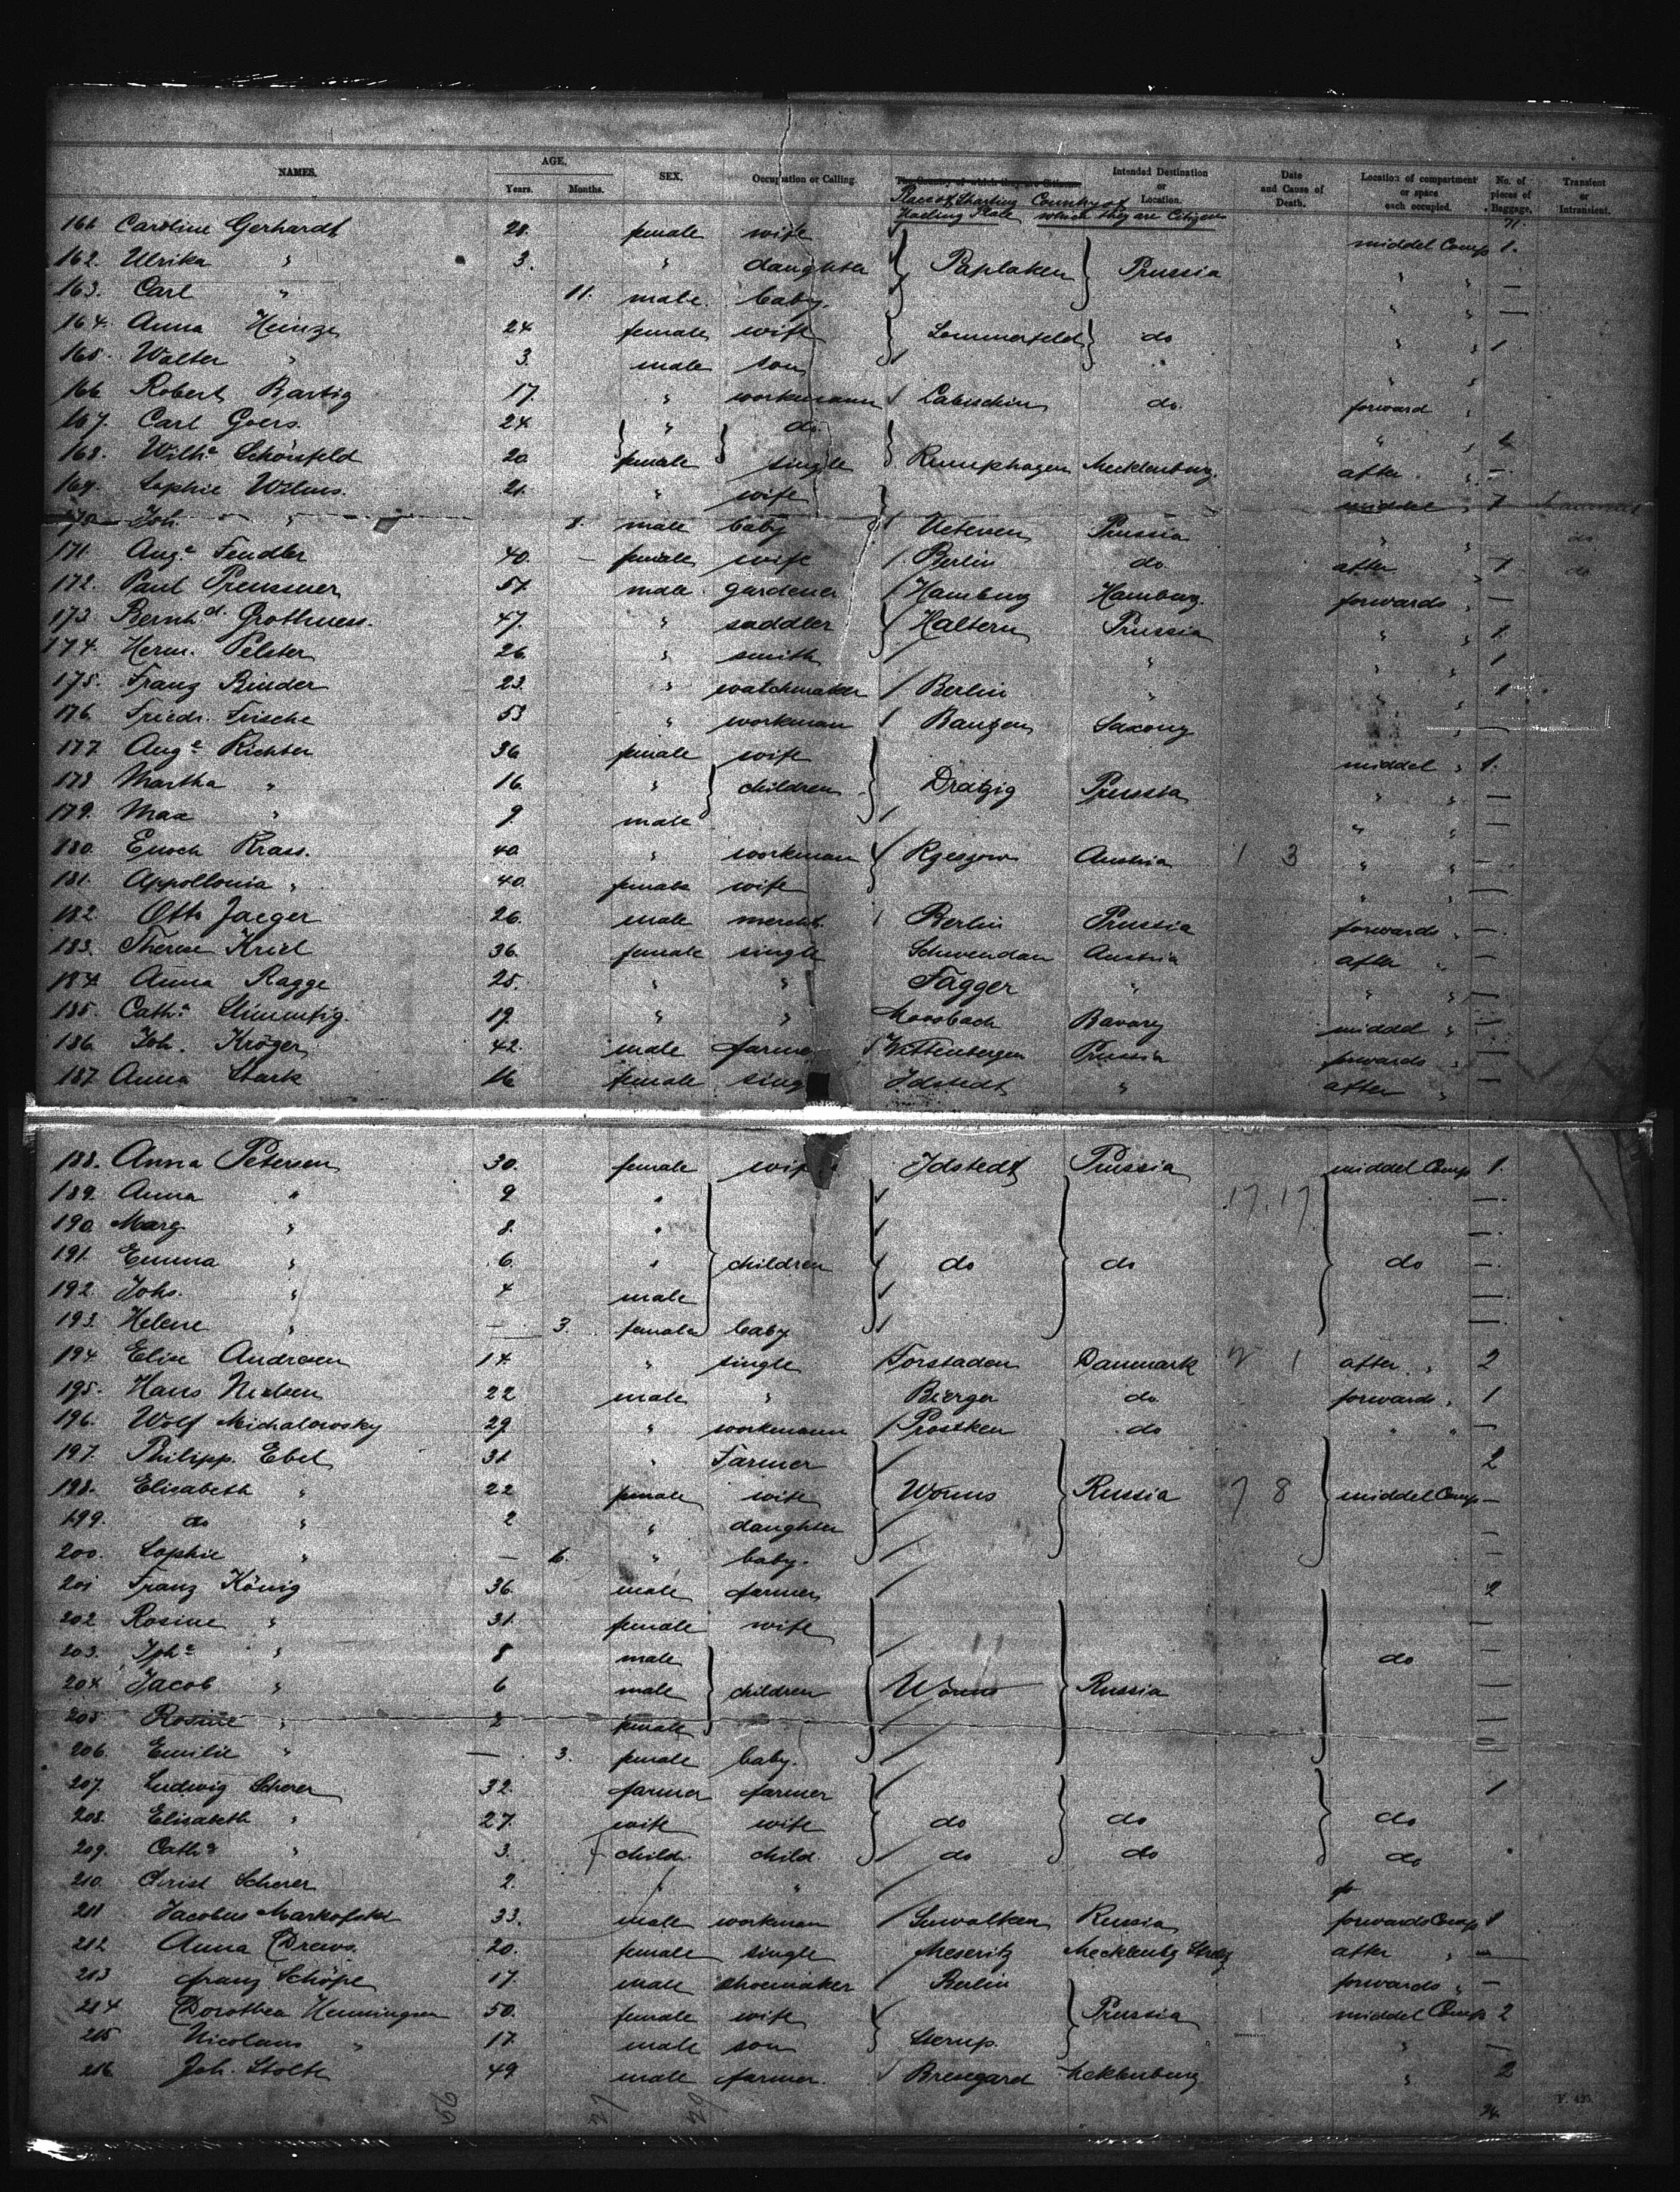 NAMES. AGE. Years. Months. SEX. Occupation or Calling. The Country of which they are Citizens. Intended Destination or Location. Date and Cause of Death. Location of compartment or space each occupied. No. of pieces of Baggage. Transient or Intransient.
Place of Starting Country of which they are Citizens
71.
161 Caroline Gerhardt 28. female wife middel Comp 1.
162. Ulrika " 3. " daughter Paplaken Prussia " " —
163. Carl " 11. male. baby. " " —
164. Anna Heinze 24 female wife Sommerfeld do " " 1
165. Walter " 3. male son " "
166 Robert Bartig 17. " workmann Labischin do. forward "
167. Carl Goers. 24 " do. " "
168. Wilh.e Schönfeld 20 female single Rumphagen Mecklenburg. after " —
169. Sophie Wilms. 21. " wife middel " 1
170. Joh. " 8. male baby Ueterren Prussia " " do
171. Aug.e Fendler 40. — female wife Berlin do. after " 1 do
172. Paul Preussner 51. male gardener Hamburg Hamburg. forwards " —
173. Bernh.d. Grothues. 47. " saddler Haltern Prussia " " 1.
174. Herm. Pelster 26. " smith " " " 1
175. Franz Binder 23. " watchmaker Berlin " " " 1
176. Friedr. Frische 53 " workman Bauzen Saxony " " —
177 Aug.e Richter 36 female wife middel " 1.
178 Martha " 16. " children Dratzig Prussia " " —
179. Max " 9. male " " —
180. Enoch Krass. 40 " workman Rzeszow Austria 1 3 " " —
181. Appollonia " 40. female wife " " —
182. Otto Jaeger 26. male mercht. Berlin Prussia forwards " —
183. Therese Kriel 36. female single Schwendau Austria after " —
184 Anna Ragge 25. " " Fagger " " " —
185. Cath.a 19. " " Moosbach Bavary middel " —
186. Joh. Kröger 42. male farmer Wittenbergen Prussia forwards " —
187. Anna Stark 16 female sing Idstedt " after " —
188. Anna Petersen 30. female wife Idstedt Prussia middel Comp 1.
189. Anna " 9 " 17. 17. —
190. Marg " 8. " —
191. Emma " 6. " children do do do —
192. Johs. " 4 male —
193. Helene " — 3. female baby —
194. Elise Andresen 14. " single Forstaden Danmark after " 2
195. Hans Nielsen 22 male " Bierger do. forwards " 1
196. Wolf Michalowsky 29 " workmann Prostken do " " —
197. Philipp. Ebel 31 " Farmer 2
198. Elisabeth " 22 female wife Worms Russia 7 8 middel Comp —
199. do " 2 " daughter —
200. Sophie " — 6. " baby. —
201 Franz König 36. male farmer 2
202 Rosine " 31. female wife —
203. Jph.e " 8 male do —
204. Jacob " 6 male children Worms Russia —
205 Rosine " 2 female —
206. Emilie " — 3. female baby. —
207. Ludwig Scherer 32. farmer farmer 1
208. Elisabeth " 27. wife wife do do do
209. Cath.a " 3. child. child. do do do
210. Christ Scherer 2. " "
211 Jacobus Markofski 33. male workman Suwalken Russia forwards Comp 1
212 Anna Drews. 20. female single Meseritz after " —
213 Franz Schöpe 17. male shoemaker Berlin forwards " —
214 Dorothea Henningsen 50. female wife Prussia middel Comp 2
215 Nicolaus " 17. male son Sterup. " —
216 Joh. Stolte 49 male farmer. Bresegard Meklenburg " 2